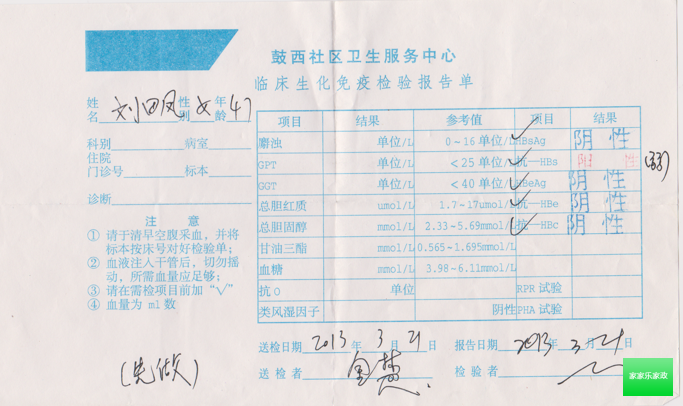 鼓西社区卫生服务中心
临床生化免疫检验报告单
姓名 刘田凤 性别 女 年龄 47
科别 病室
住院
门诊号 标本
诊断
注 意
① 请于清早空腹采血，并将标本按床号对好检验单；
② 血液注入干管后，切勿摇动，所需血量应足够；
③ 请在需检项目前加“√”
④ 血量为 ml 数
(先做)
项目 结果 参考值 项目 结果
麝浊 单位/L 0~16 单位/L √ HBsAg 阴 性
GPT 单位/L <25 单位/L √ 抗—HBs 阳 性 (弱)
GGT 单位/L <40 单位/L √ HBeAg 阴 性
总胆红质 umol/L 1.7-17umol/L √ 抗—HBe 阴 性
总胆固醇 mmol/L 2.33-5.69mmol/L √ 抗—HBc 阴 性
甘油三酯 mmol/L 0.565-1.695mmol/L
血糖 mmol/L 3.98-6.11mmol/L
抗 O 单位 RPR 试验
类风湿因子 阴性 PHA 试验
送检日期 2013 年 3 月 21 日 报告日期 2013 年 3 月 21 日
送 检 者 检 验 者
家家乐家政